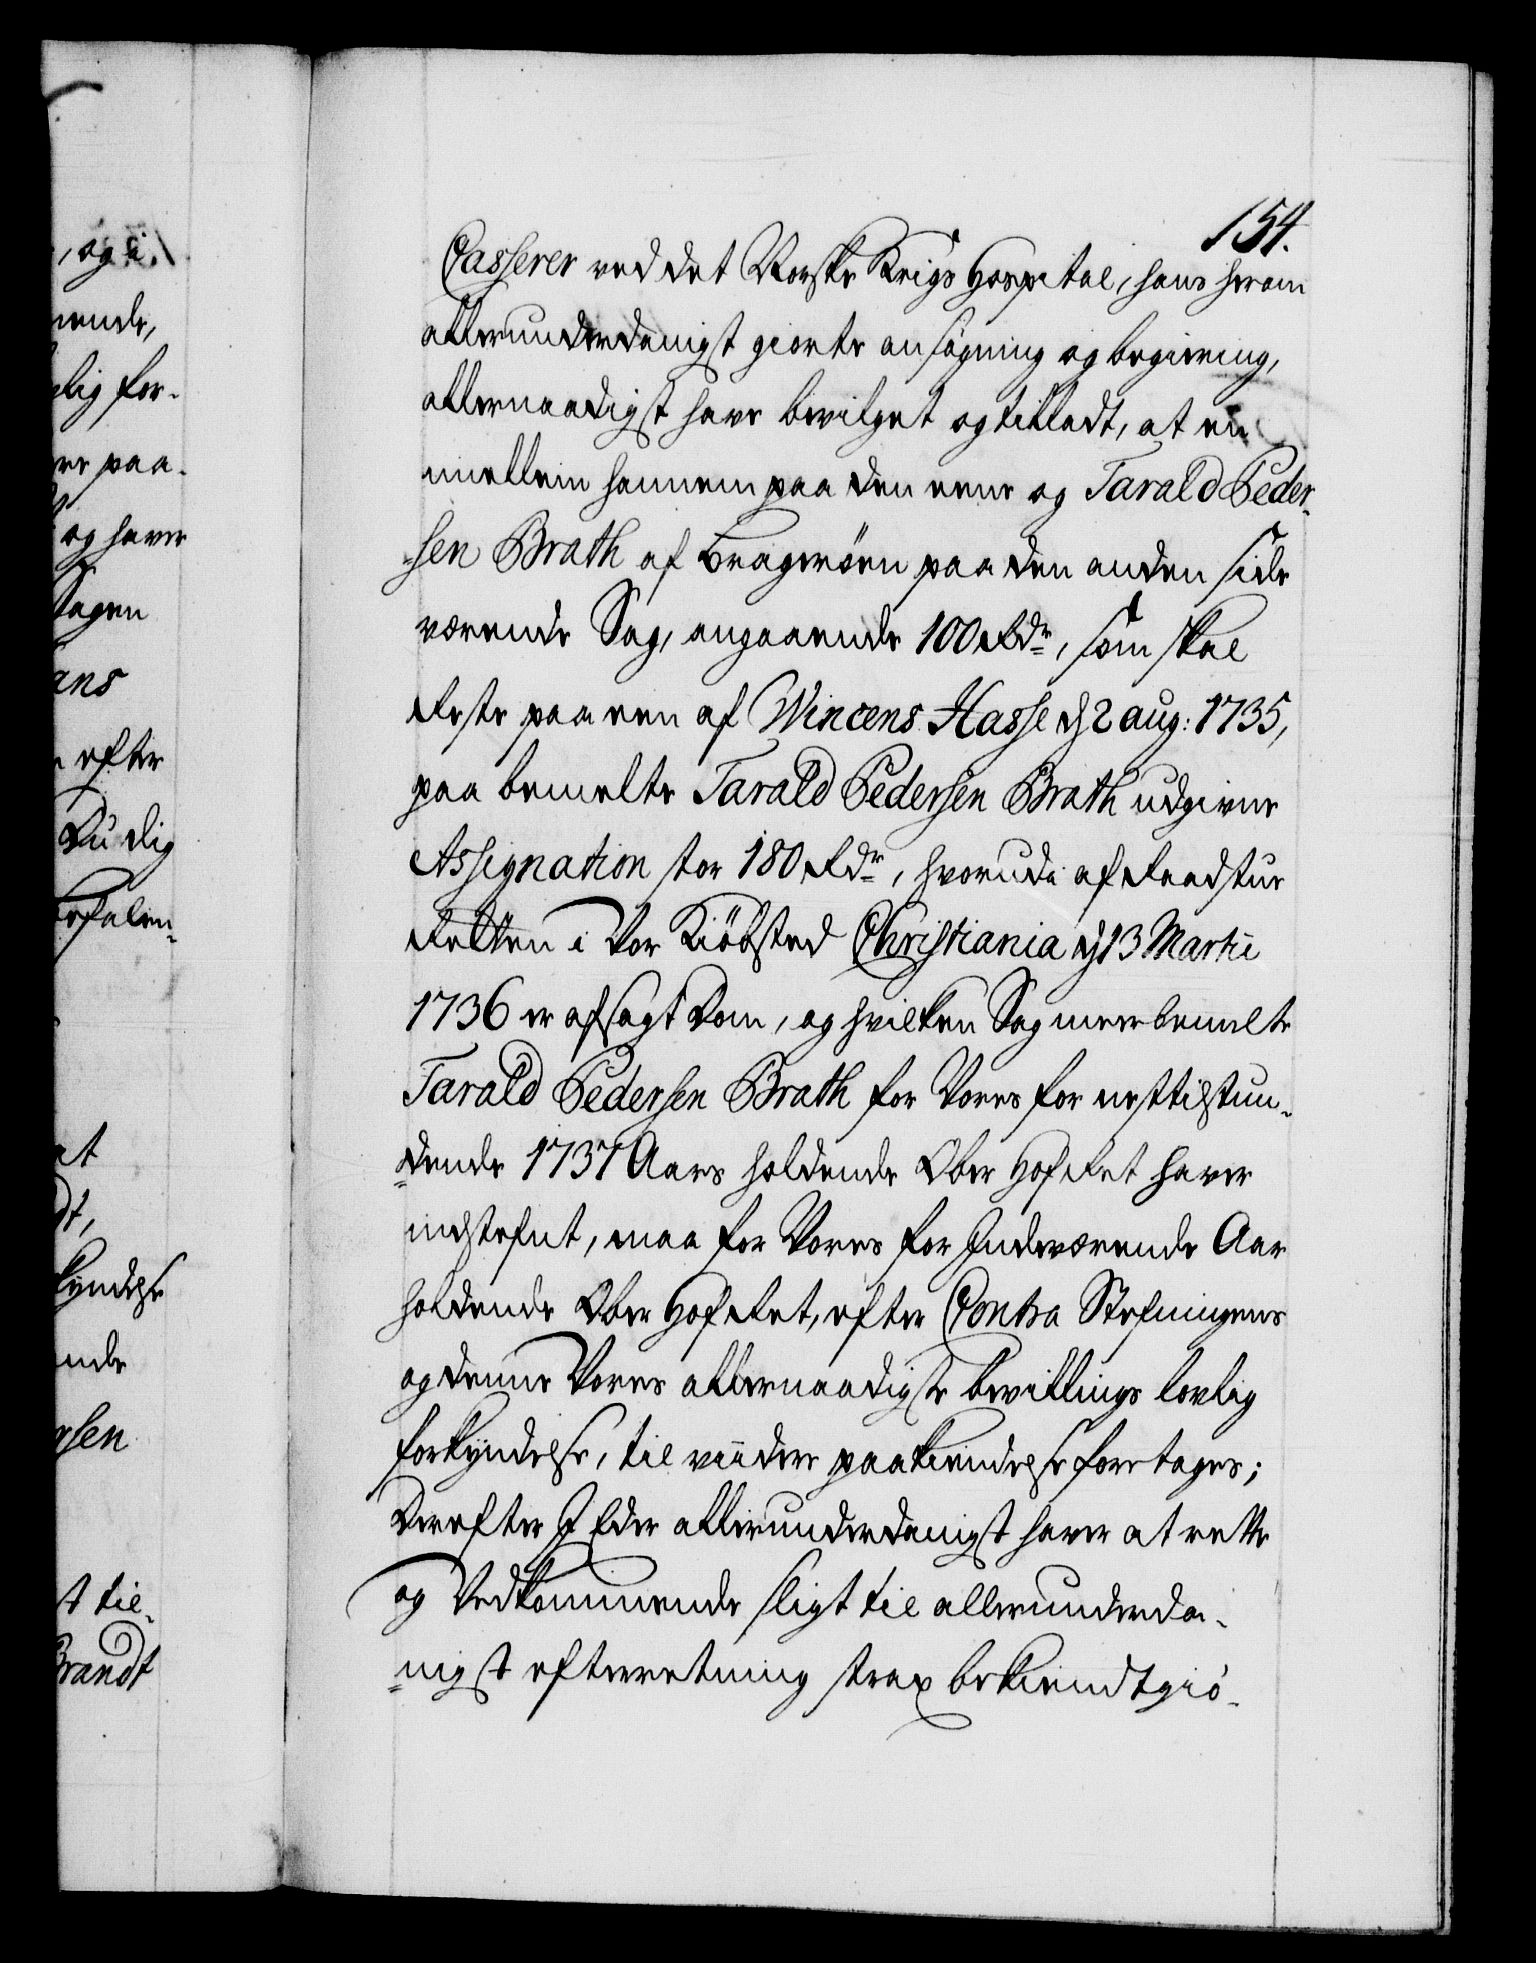 154.
Casserer ved det Norske Krigs Hospital, hans herom
allerunderdanigst giorte ansøgning og begiering,
allernaadigst have bevilget og tilladt, at en
imellem hannem paa den eene og Tarald Peder-
sen Brath af Bragenøen paa den anden side
værende Sag, angaaende 100 Rdr, som skal
reste paa een af Wincens Hasse d 2 aug: 1735,
paa bemelte Tarald Pedersen Brath udgivne
Assignation stor 180 Rdr, hvorudi af Raadstue
Retten i Vor Kiøbsted Christiania d 13 Martii
1736 er afsagt Dom, og hvilken Sag meerbemelte
Tarald Pedersen Brath for Vores for nesttilstun-
dende 1737 Aars holdende Ober Hof Ret haver
indstefnt, maa for Vores for Indeværende Aar
holdende Ober Hof Ret, efter Contra Stefningens
og denne Vores allernaadigste bevillings lovlig
forkyndelse, til viidere paakiendelse foretages;
Derefter I Eder allerunderdanigst haver at rette
og Vedkommende sligt til allerunderda-
nigst efterretning strax bekiendtgiø-
, og i
nende,
lig for-
ere paa-
og haver
Sagen
ans
efter
Du dig
befalen-
at
dt,
kyndelse
ende
rsen
st til-
Brandt